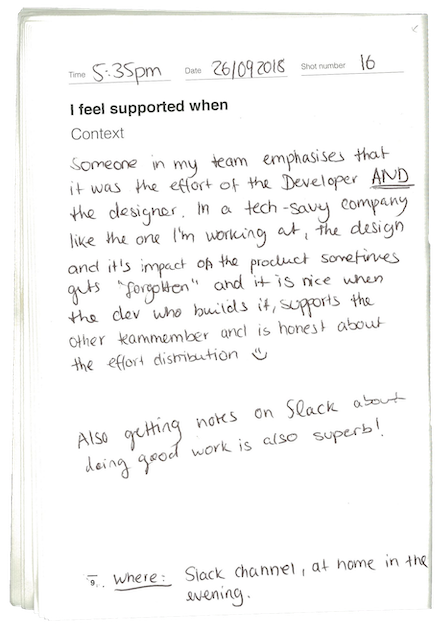 Time 5:35pm Date 26/09 2018 Shot number 16
I feel supported when
Context
Someone in my team emphasises that
it was the effort of the Developer AND
the designer. In a tech-savy company
like the one I'm working at, the design
and it's impact on the product sometimes
gets "forgotten" and it is nice when
the dev who builds it, supports the
other teammember and is honest about
the effort distribution
Also getting notes on Slack about
doing good work is also superb!
9. where: Slack channel, at home in the
evening.